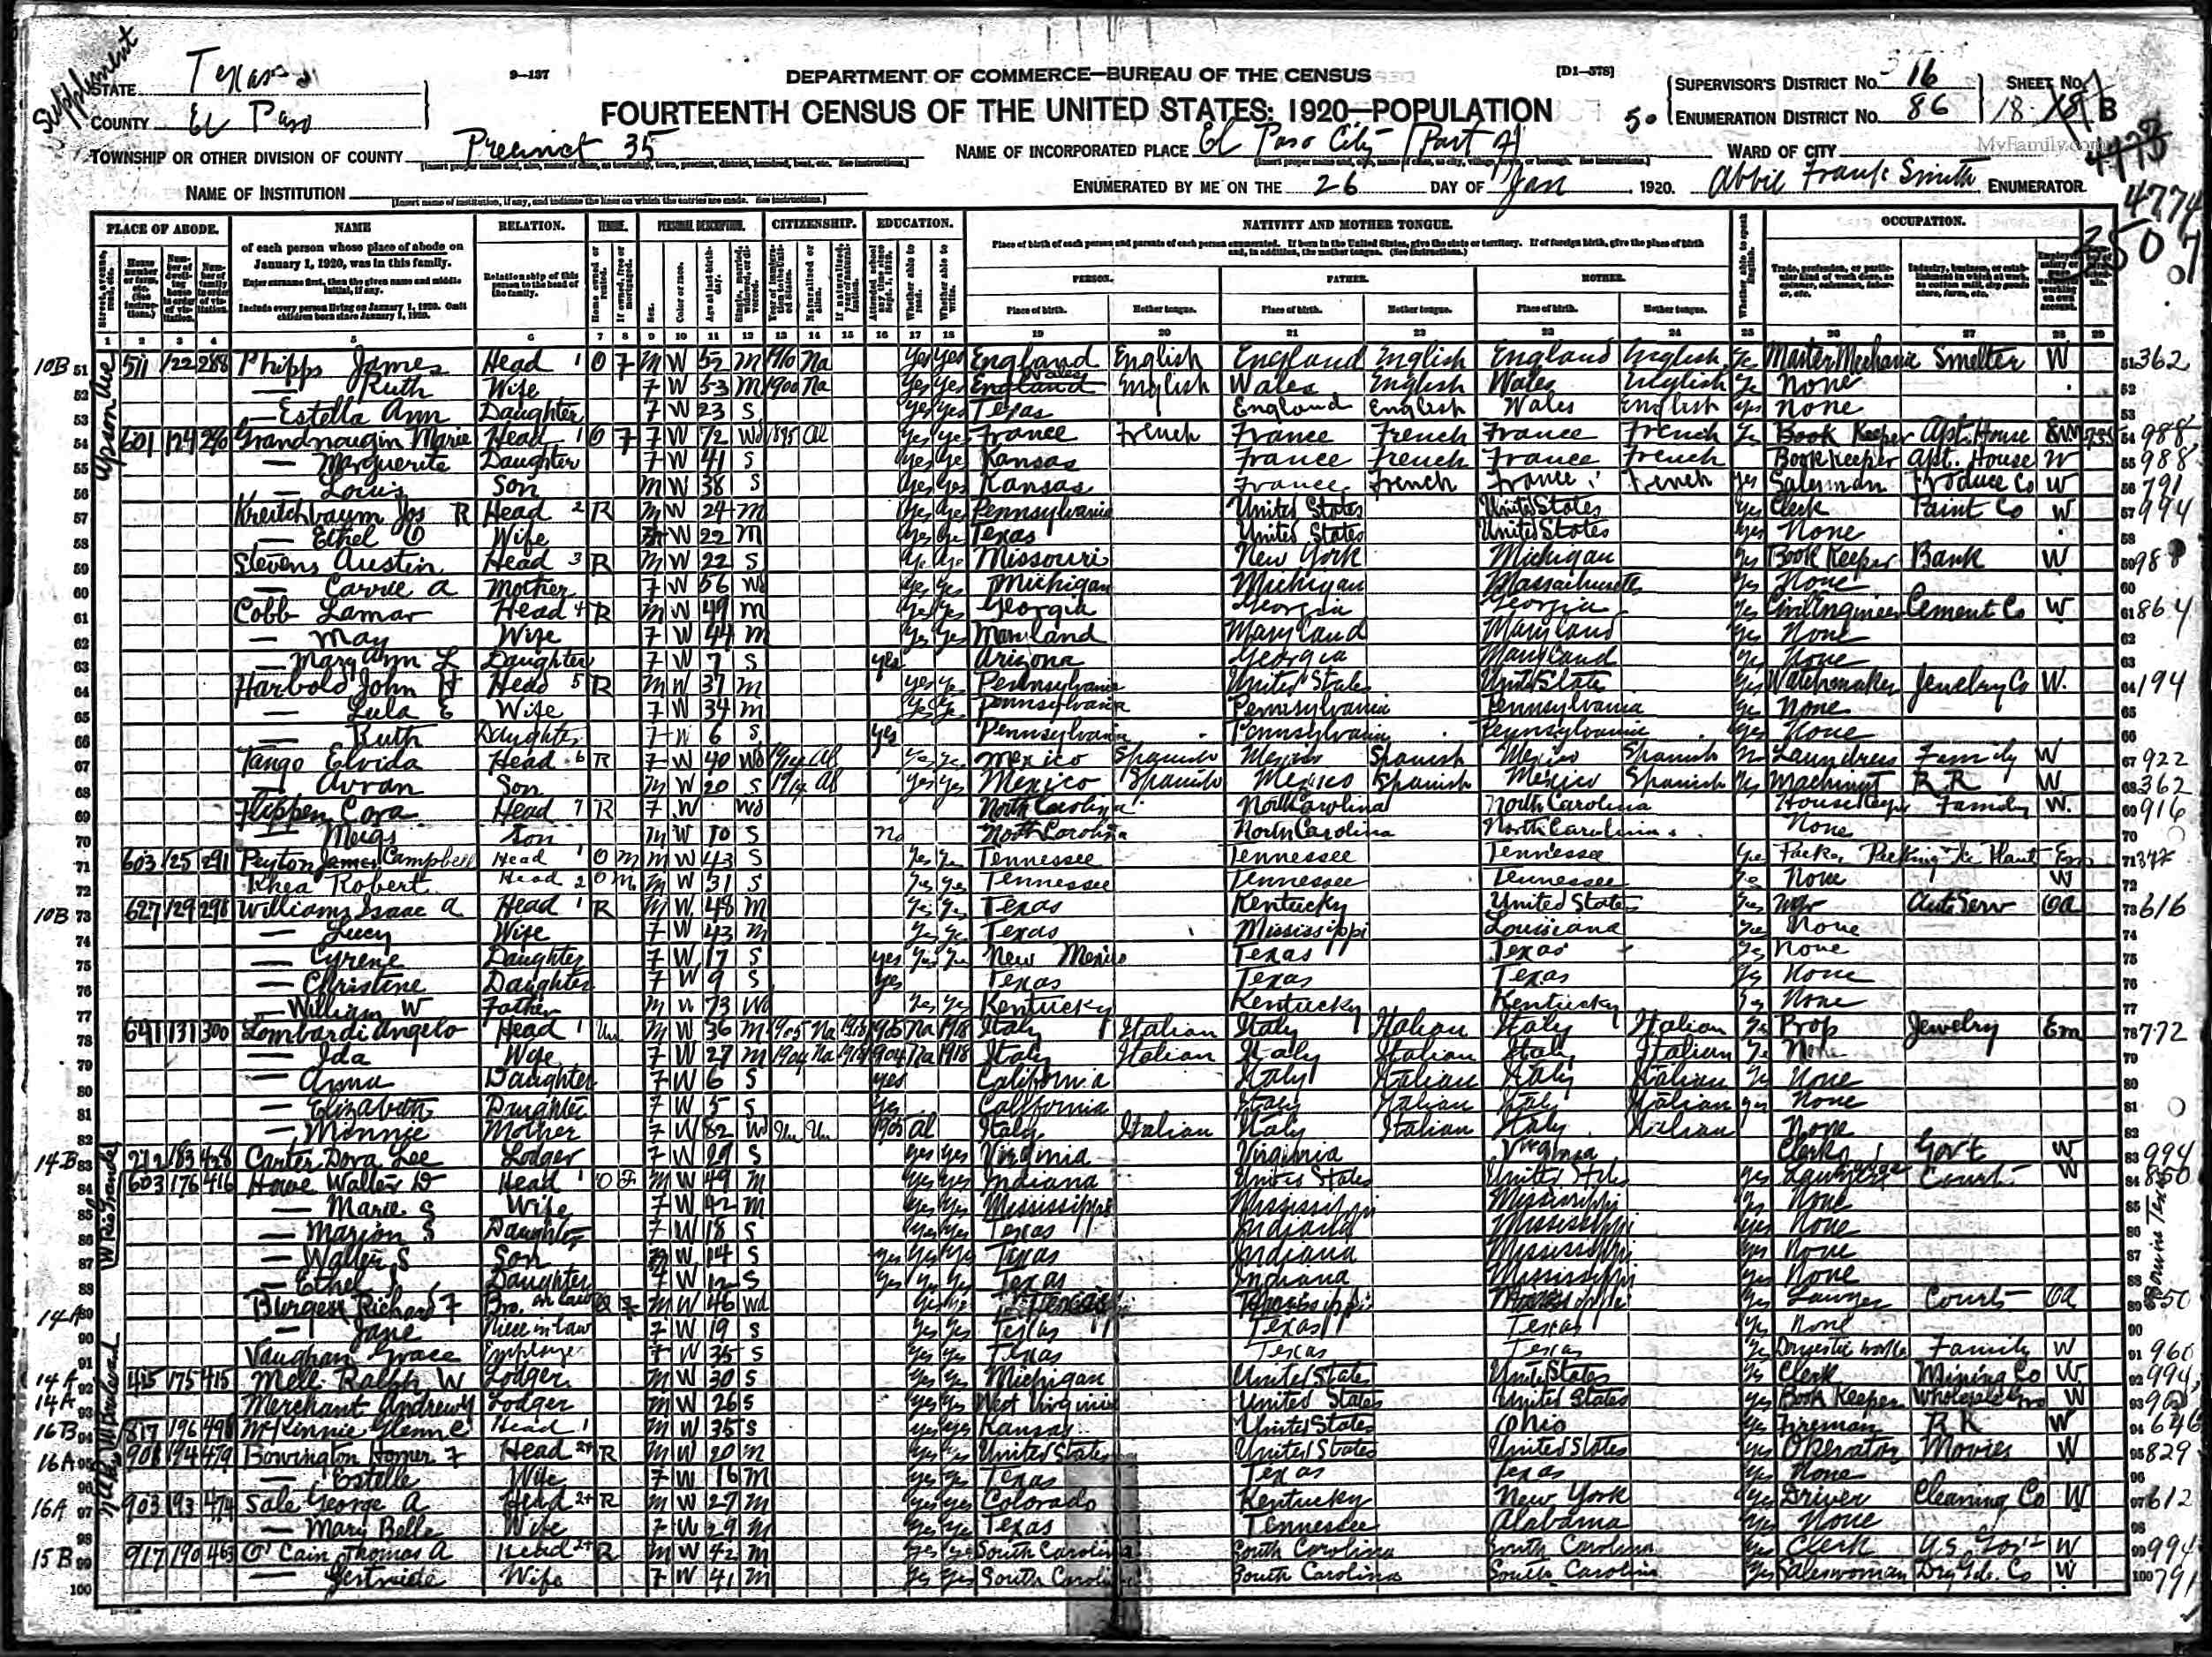 Supplement
STATE Texas
COUNTY El Paso
9—137
DEPARTMENT OF COMMERCE—BUREAU OF THE CENSUS
[D1—578]
FOURTEENTH CENSUS OF THE UNITED STATES: 1920—POPULATION
SUPERVISOR'S DISTRICT No. 16
ENUMERATION DISTRICT No. 86
SHEET No. 18 B
50
TOWNSHIP OR OTHER DIVISION OF COUNTY Precinct 35
NAME OF INCORPORATED PLACE El Paso City (Part of)
WARD OF CITY
MyFamily.com
4773
NAME OF INSTITUTION
ENUMERATED BY ME ON THE 26 DAY OF Jan, 1920. Abbie Frank Smith ENUMERATOR
4774
PLACE OF ABODE. NAME RELATION. TENURE. PERSONAL DESCRIPTION. CITIZENSHIP. EDUCATION. NATIVITY AND MOTHER TONGUE. OCCUPATION.
of each person whose place of abode on January 1, 1920, was in this family.
Enter surname first, then the given name and middle initial, if any.
Include every person living on January 1, 1920. Omit children born since January 1, 1920.
Relationship of this person to the head of the family.
Place of birth of each person and parents of each person enumerated. If born in the United States, give the state or territory. If of foreign birth, give the place of birth and, in addition, the mother tongue. (See instructions.)
PERSON. FATHER. MOTHER.
Place of birth. Mother tongue. Place of birth. Mother tongue. Place of birth. Mother tongue.
1 2 3 4 5 6 7 8 9 10 11 12 13 14 15 16 17 18 19 20 21 22 23 24 25 26 27 28 29
Upson Ave
10B 51 511 122 288 Phipps James Head 1 O F M W 52 M 1910 Na Yes Yes England English England English England English Yes Master Mechanic Smelter W 51 362
52 — Ruth Wife F W 53 M 1900 Na Yes Yes England Wales English Wales English Wales English Ye None 52
53 — Estella Ann Daughter F W 23 S Yes Yes Texas England English Wales English Yes None 53
54 601 124 290 Grandnougin Marie Head 1 O F F W 72 Wd 1895 Al Yes Yes France French France French France French Ye Book Keeper Apt. House 54 988
55 — Marguerite Daughter F W 41 S Yes Ye Kansas France French France French Book Keeper Apt. House W 55 988
56 — Louis Son M W 38 S Yes Yes Kansas France French France French Yes Salesman Produce Co W 56 791
57 Kreitchbaum Jos R Head 2 R M W 24 M Yes Yes Pennsylvania United States United States Yes Clerk Paint Co W 57 994
58 — Ethel O Wife F W 22 M Yes Ye Texas United States United States Yes None 58
59 Stevens Austin Head 3 R M W 22 S Missouri New York Michigan Ys Book Keeper Bank W 59 988
60 — Carrie A Mother F W 56 Wd Yes Yes Michigan Michigan Massachusetts Yes None 60
61 Cobb Lamar Head 4 R M W 49 M Yes Yes Georgia Georgia Georgia Yes Civil Engineer Cement Co W 61 864
62 — May Wife F W 44 M Yes Yes Maryland Maryland Maryland Yes None 62
63 — Mary Ann L Daughter F W 7 S Yes Arizona Georgia Maryland Ys None 63
64 Harbold John H Head 5 R M W 37 M Yes Ye Pennsylvania United States United State Yes Watchmaker Jewelry Co W. 64 194
65 — Lula E Wife F W 34 M Yes Ye Pennsylvania Pennsylvania Pennsylvania Ye None 65
66 — Ruth Daughter F W 6 S Yes Pennsylvania Pennsylvania Pennsylvania Yes None 66
67 Tango Elvida Head 6 R F W 40 Wd 1914 Al Mexico Spanish Mexico Spanish Mexico Spanish No Laundress Family W 67 922
68 — Arran Son M W 20 S 1914 Al Yes Yes Mexico Spanish Mexico Spanish Mexico Spanish Ys Machinist R R W 68 362
69 Flippen Cora Head 7 R F W Wd North Carolina North Carolina North Carolina House Keeper Family W. 69 916
70 — Meigs Son M W 10 S No North Carolina North Carolina North Carolina None 70
71 603 125 291 Peyton James Campbell Head 1 O M M W 43 S Yes Ye Tennessee Tennessee Tennessee Ye Packer Packing Plant Em 71
72 Rhea Robert Head 2 O M M W 31 S Yes Yes Tennessee Tennessee Tennessee Ye None W 72
10B 73 627 129 298 Williams Isaac A Head 1 R M W 48 M Yes Ye Texas Kentucky United States Yes Mgr Auto Serv Oa 73 616
74 — Lucy Wife F W 43 M Yes Ye Texas Mississippi Louisiana Yes None 74
75 — Cyrene Daughter F W 17 S Yes Yes Yes New Mexico Texas Texas Ye None 75
76 — Christine Daughter F W 9 S Yes Texas Texas Texas Ys None 76
77 — William W Father M W 73 Wd Yes Ye Kentucky Kentucky Kentucky Ys None 77
78 641 131 300 Lombardi Angelo Head 1 Un M W 36 M 1905 Na 1918 1905 Na 1918 Italy Italian Italy Italian Italy Italian Ye Prop Jewelry Em 78 772
79 — Ida Wife F W 27 M 1904 Na 1918 1904 Na 1918 Italy Italian Italy Italian Italy Italian Ye None 79
80 — Anna Daughter F W 6 S Yes California Italy Italian Italy Italian Ye None 80
81 — Elizabeth Daughter F W 5 S Ye California Italy Italian Italy Italian Yes None 81
82 — Minnie Mother F W 82 Wd Un Un 1905 Al Italy Italian Italy Italian Italy Italian None 82
W Rio Grande
14B 83 212 183 428 Carter Dora Lee Lodger F W 29 S Yes Yes Virginia Virginia Virginia Clerk Govt W 83 994
84 603 176 416 Howe Walter D Head 1 O F M W 49 M Yes Yes Indiana United States United States Yes Lawyer Court W 84 850
85 — Marie S Wife F W 42 M Yes Yes Mississippi Mississippi Mississippi Ys None 85
86 — Marion S Daughter F W 18 S Yes Yes Texas Indiana Mississippi Yes None 86
87 — Walter S Son M W 14 S Yes Yes Yes Texas Indiana Mississippi Yes None 87
88 — Ethel Daughter F W 12 S Yes Yes Yes Texas Indiana Mississippi Yes None 88
14A 89 Burgess Richard F Bro. in law O F M W 46 Wd Yes Ye Texas Yes Lawyer Courts Oa 89 850
90 — Jane Niece in Law F W 19 S Yes Yes Texas Texas Texas Yes None 90
91 Vaughan Grace Employee F W 35 S Yes Yes Texas Texas Texas Ye Domestic Family W 91 960
14A 92 415 175 415 Mell Ralph W Lodger M W 30 S Yes Yes Michigan United States United States Ys Clerk Mining Co W 92 994
14A 93 Merchant Andrew Lodger M W 26 S Yes Yes West Virginia United States United States Yes Book Keeper Wholesale Gro W 93
16B 94 817 196 498 McKinnie Glenn C Head 1 M W 35 S Yes Yes Kansas United States Ohio Yes Fireman R R W 94 646
16A 95 908 194 479 Bovington Homer F Head 2+ R M W 20 M Yes Yes United States United States United States Yes Operator Movies W 95 829
96 — Estelle Wife F W 16 M Yes Yes Texas Texas Texas Yes None 96
16A 97 903 193 474 Sale George A Head 2+ R M W 27 M Yes Yes Colorado Kentucky New York Yes Driver Cleaning Co W 97 612
98 — Mary Belle Wife F W 29 M Yes Yes Texas Tennessee Alabama Yes None 98
15B 99 917 190 463 O'Cain Thomas A Head 2+ R M W 42 M Yes Yes South Carolina South Carolina South Carolina Yes Clerk U.S. Govt W 99 994
100 — Gertrude Wife F W 41 M Yes Yes South Carolina South Carolina South Carolina Yes Saleswoman Dry Gds. Co W 100 791